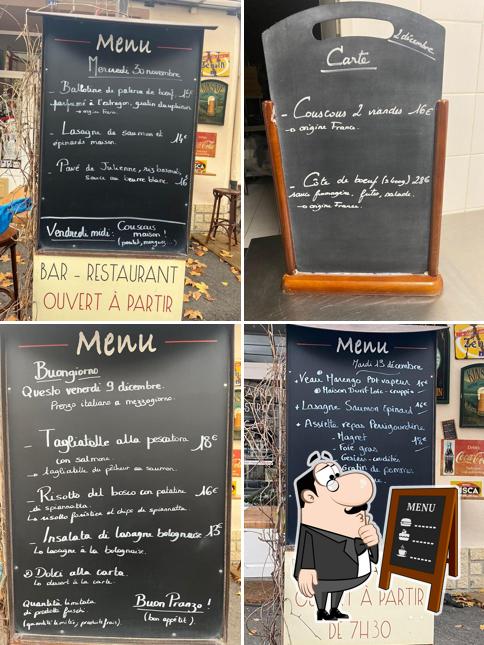 Menu
Mercredi 30 novembre
- Ballotine de paleron de boeuf. 16€
parfumé à l'estragon, gratin dauphinois
→ origine France
- Lasagne de saumon et 14€
épinards maison.
- Pavé de Julienne, riz basmati,
sauce au beurre blanc. 16€
Vendredi midi: Couscous
maison!
(poulet, merguez,...)
BAR - RESTAURANT
OUVERT À PARTIR
2 décembre
Carte
- Couscous 2 viandes 16€
→ origine France.
- Côte de boeuf 28€
sauce fumagère. frites, salade.
→ origine France.
Menu
Buongiorno
Questo venerdi 9 dicembre.
Pranzo italiano a mezzogiorno.
- Tagliatelle alla pescatora 18€
con salmone.
→ tagliatelle du pêcheur au saumon.
- Risotto del bosco con patatine 16€
di spianatta.
Le risotto forestier et chips de spianatta.
- Insalata di lasagne bolognaise 13€
La lasagne à la bolognaise.
Dolci alla carta.
Le dessert à la carte.
Quantita limitata
di prodotti freschi
(quantité limitée, produits frais).
Buon Pranzo!
(bon appétit).
Menu
Mardi 13 décembre
Veau Marengo
+ Lasagne Saumon Epinard
+ Assiette repas Perrigourdine
- Magret
- Foie gras
- Gésiers - crudités
Gratin de pommes
MENU
Coca-Cola
OUVERT À PARTIR
DE 7H30